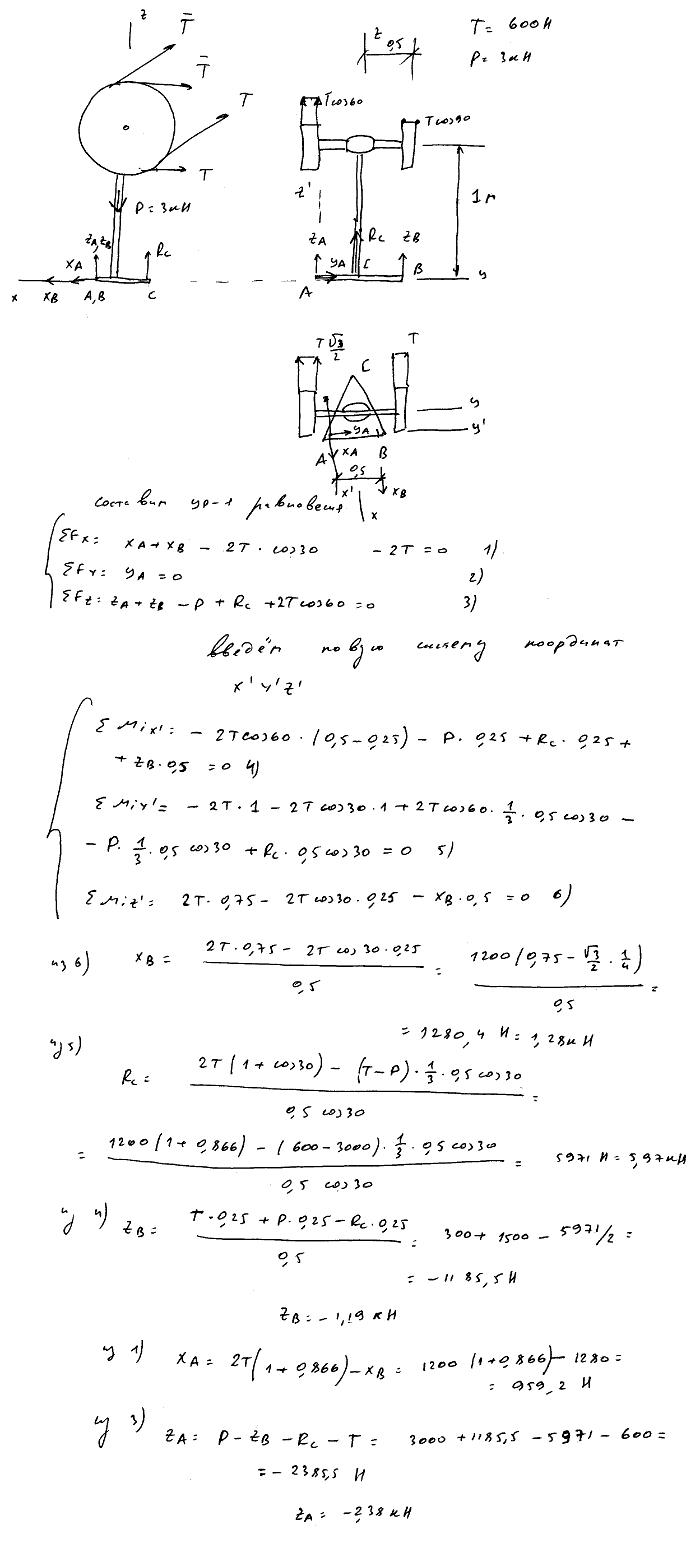 z
T̄
T̄
T
T
P = 3кН
z_A, z_B
R_C
x_A
x
x_B
A, B
C
T = 600 Н
P = 3кН
z
0,5
Tcos60
Tcos90
z'
z_A
R_C
z_B
1м
y_A
C
A
B
y
T √3/2
T
C
y
y'
y_A
A
x_A
B
0,5
x'
x
x_B
составим ур-я равновесия
ΣFx: x_A + x_B - 2T · cos30 - 2T = 0 1)
ΣFy: y_A = 0 2)
ΣFz: z_A + z_B - P + R_C + 2Tcos60 = 0 3)
введём новую систему координат
x' y' z'
ΣMix': - 2Tcos60 · (0,5 - 0,25) - P · 0,25 + R_C · 0,25 +
+ z_B · 0,5 = 0 4)
ΣMiy' = - 2T · 1 - 2Tcos30 · 1 + 2Tcos60 · 1/3 · 0,5 cos30 -
- P · 1/3 · 0,5 cos30 + R_C · 0,5 cos30 = 0 5)
ΣMiz': 2T · 0,75 - 2T cos30 · 0,25 - x_B · 0,5 = 0 6)
из 6) x_B = (2T · 0,75 - 2T cos30 · 0,25) / 0,5 = 1200 (0,75 - √3/2 · 1/4) / 0,5 =
= 1280,4 Н = 1,28кН
из 5)
R_C = (2T (1 + cos30) - (T - P) · 1/3 · 0,5 cos30) / (0,5 cos30) =
= (1200 (1 + 0,866) - (600 - 3000) · 1/3 · 0,5 cos30) / (0,5 cos30) = 5971 Н = 5,97кН
из 4) z_B = (T · 0,25 + P · 0,25 - R_C · 0,25) / 0,5 = 300 + 1500 - 5971/2 =
= - 1185,5 Н
z_B = - 1,19 кН
из 1) x_A = 2T (1 + 0,866) - x_B = 1200 (1 + 0,866) - 1280 =
= 959,2 Н
из 3)
z_A = P - z_B - R_C - T = 3000 + 1185,5 - 5971 - 600 =
= - 2385,5 Н
z_A = - 2,38 кН